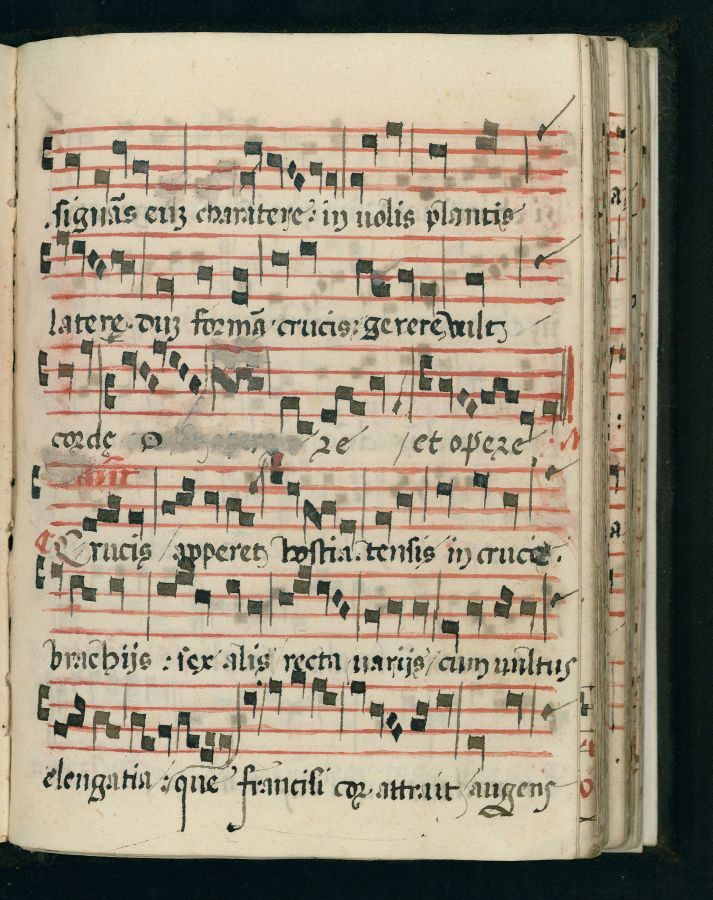 signās eiꝫ charatere: in uolis plantis
latere. dūꝫ formā crucis: gerere uult
corde o re et opere
Añ
Crucis apperet hostia: tensis in cruce.
brachijs: sex alis recta uarijs cum uultus
elengatia: que francisi cor attrait augens